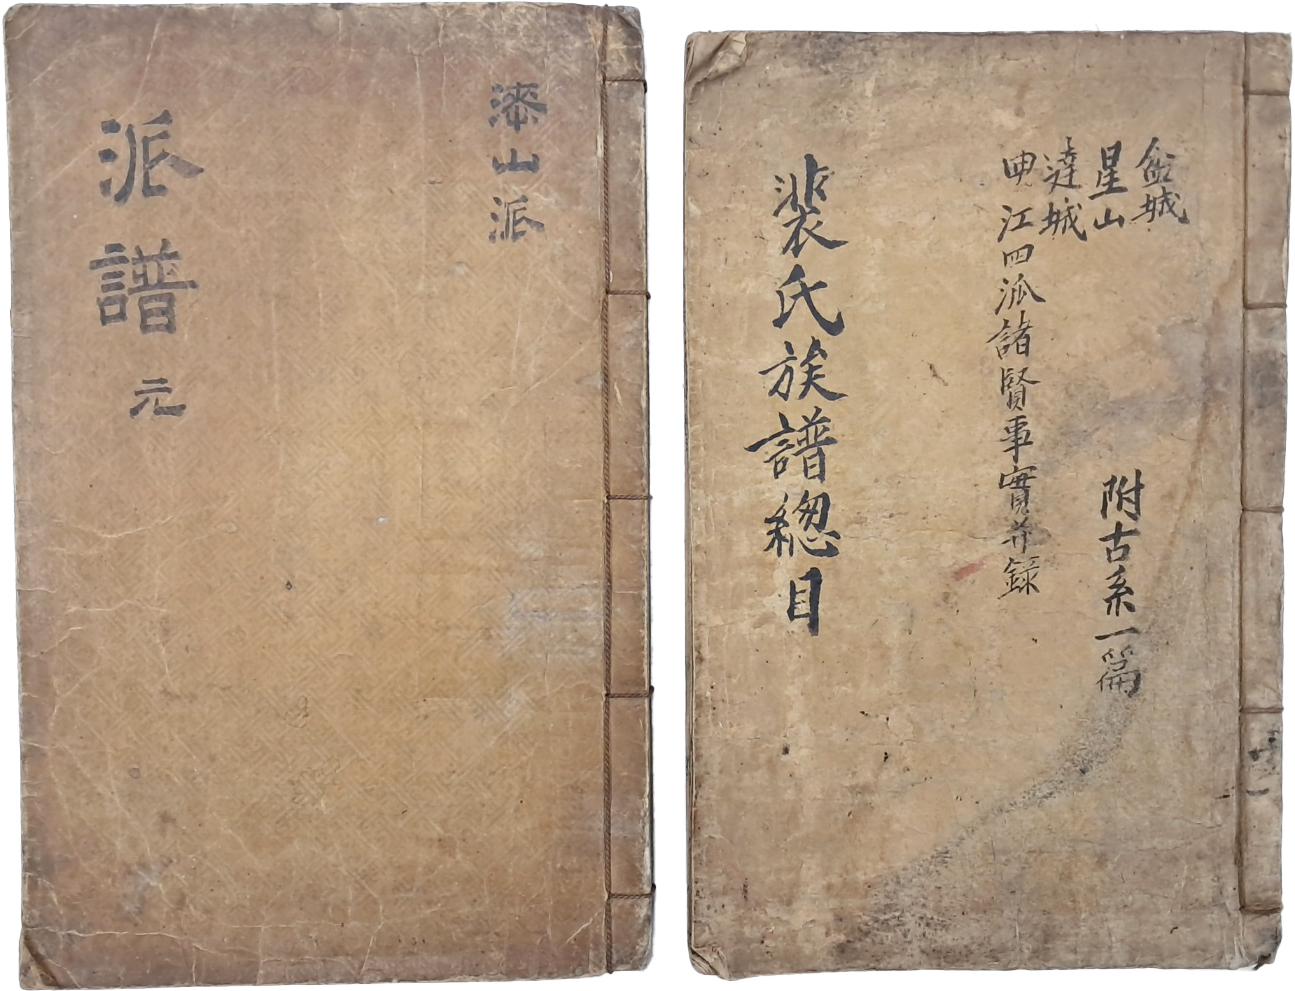 漆山派
派譜 元
盆城
星山
達城
曲江四派諸賢事實并錄
附古系一篇
裴氏族譜緫目